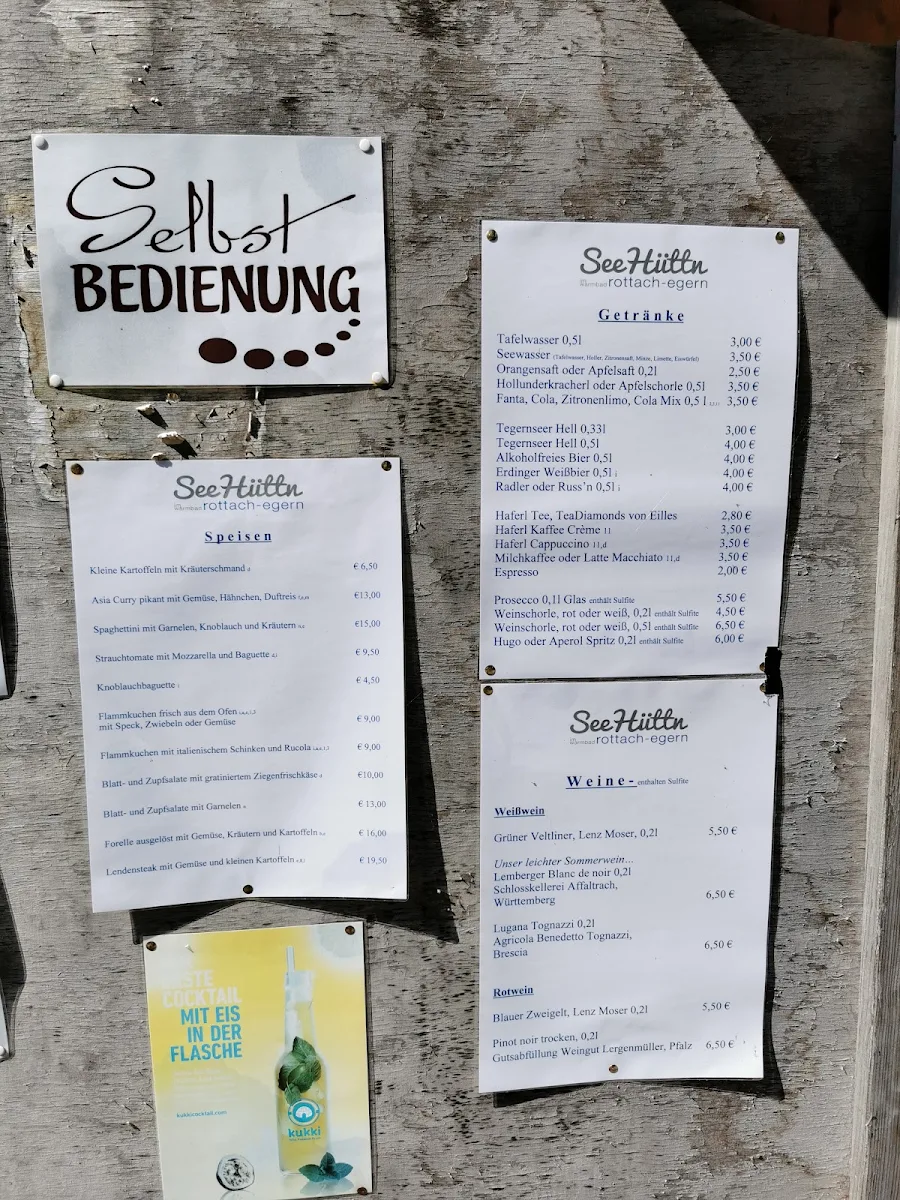 Selbst
BEDIENUNG
SeeHüttn
rottach-egern
Speisen
Kleine Kartoffeln mit Kräuterschmand € 6,50
Asia Curry pikant mit Gemüse, Hähnchen, Duftreis €13,00
Spaghettini mit Garnelen, Knoblauch und Kräutern €15,00
Strauchtomate mit Mozzarella und Baguette € 9,50
Knoblauchbaguette € 4,50
Flammkuchen frisch aus dem Ofen
mit Speck, Zwiebeln oder Gemüse € 9,00
Flammkuchen mit italienischem Schinken und Rucola € 9,00
Blatt- und Zupfsalate mit gratiniertem Ziegenfrischkäse €10,00
Blatt- und Zupfsalate mit Garnelen € 13,00
Forelle ausgelöst mit Gemüse, Kräutern und Kartoffeln € 16,00
Lendensteak mit Gemüse und kleinen Kartoffeln € 19,50
COCKTAIL
MIT EIS
IN DER
FLASCHE
kukkicocktail.com
kukki
SeeHüttn
rottach-egern
Getränke
Tafelwasser 0,5l 3,00 €
Seewasser (Tafelwasser, Holler, Zitronensaft, Minze, Limette, Eiswürfel) 3,50 €
Orangensaft oder Apfelsaft 0,2l 2,50 €
Hollunderkracherl oder Apfelschorle 0,5l 3,50 €
Fanta, Cola, Zitronenlimo, Cola Mix 0,5 l 3,50 €
Tegernseer Hell 0,33l 3,00 €
Tegernseer Hell 0,5l 4,00 €
Alkoholfreies Bier 0,5l 4,00 €
Erdinger Weißbier 0,5l 4,00 €
Radler oder Russ'n 0,5l 4,00 €
Haferl Tee, TeaDiamonds von Eilles 2,80 €
Haferl Kaffee Crème 11 3,50 €
Haferl Cappuccino 11,d 3,50 €
Milchkaffee oder Latte Macchiato 11,d 3,50 €
Espresso 2,00 €
Prosecco 0,1l Glas enthält Sulfite 5,50 €
Weinschorle, rot oder weiß, 0,2l enthält Sulfite 4,50 €
Weinschorle, rot oder weiß, 0,5l enthält Sulfite 6,50 €
Hugo oder Aperol Spritz 0,2l enthält Sulfite 6,00 €
SeeHüttn
rottach-egern
Weine- enthalten Sulfite
Weißwein
Grüner Veltliner, Lenz Moser, 0,2l 5,50 €
Unser leichter Sommerwein...
Lemberger Blanc de noir 0,2l
Schlosskellerei Affaltrach,
Württemberg 6,50 €
Lugana Tognazzi 0,2l
Agricola Benedetto Tognazzi,
Brescia 6,50 €
Rotwein
Blauer Zweigelt, Lenz Moser 0,2l 5,50 €
Pinot noir trocken, 0,2l
Gutsabfüllung Weingut Lergenmüller, Pfalz 6,50 €